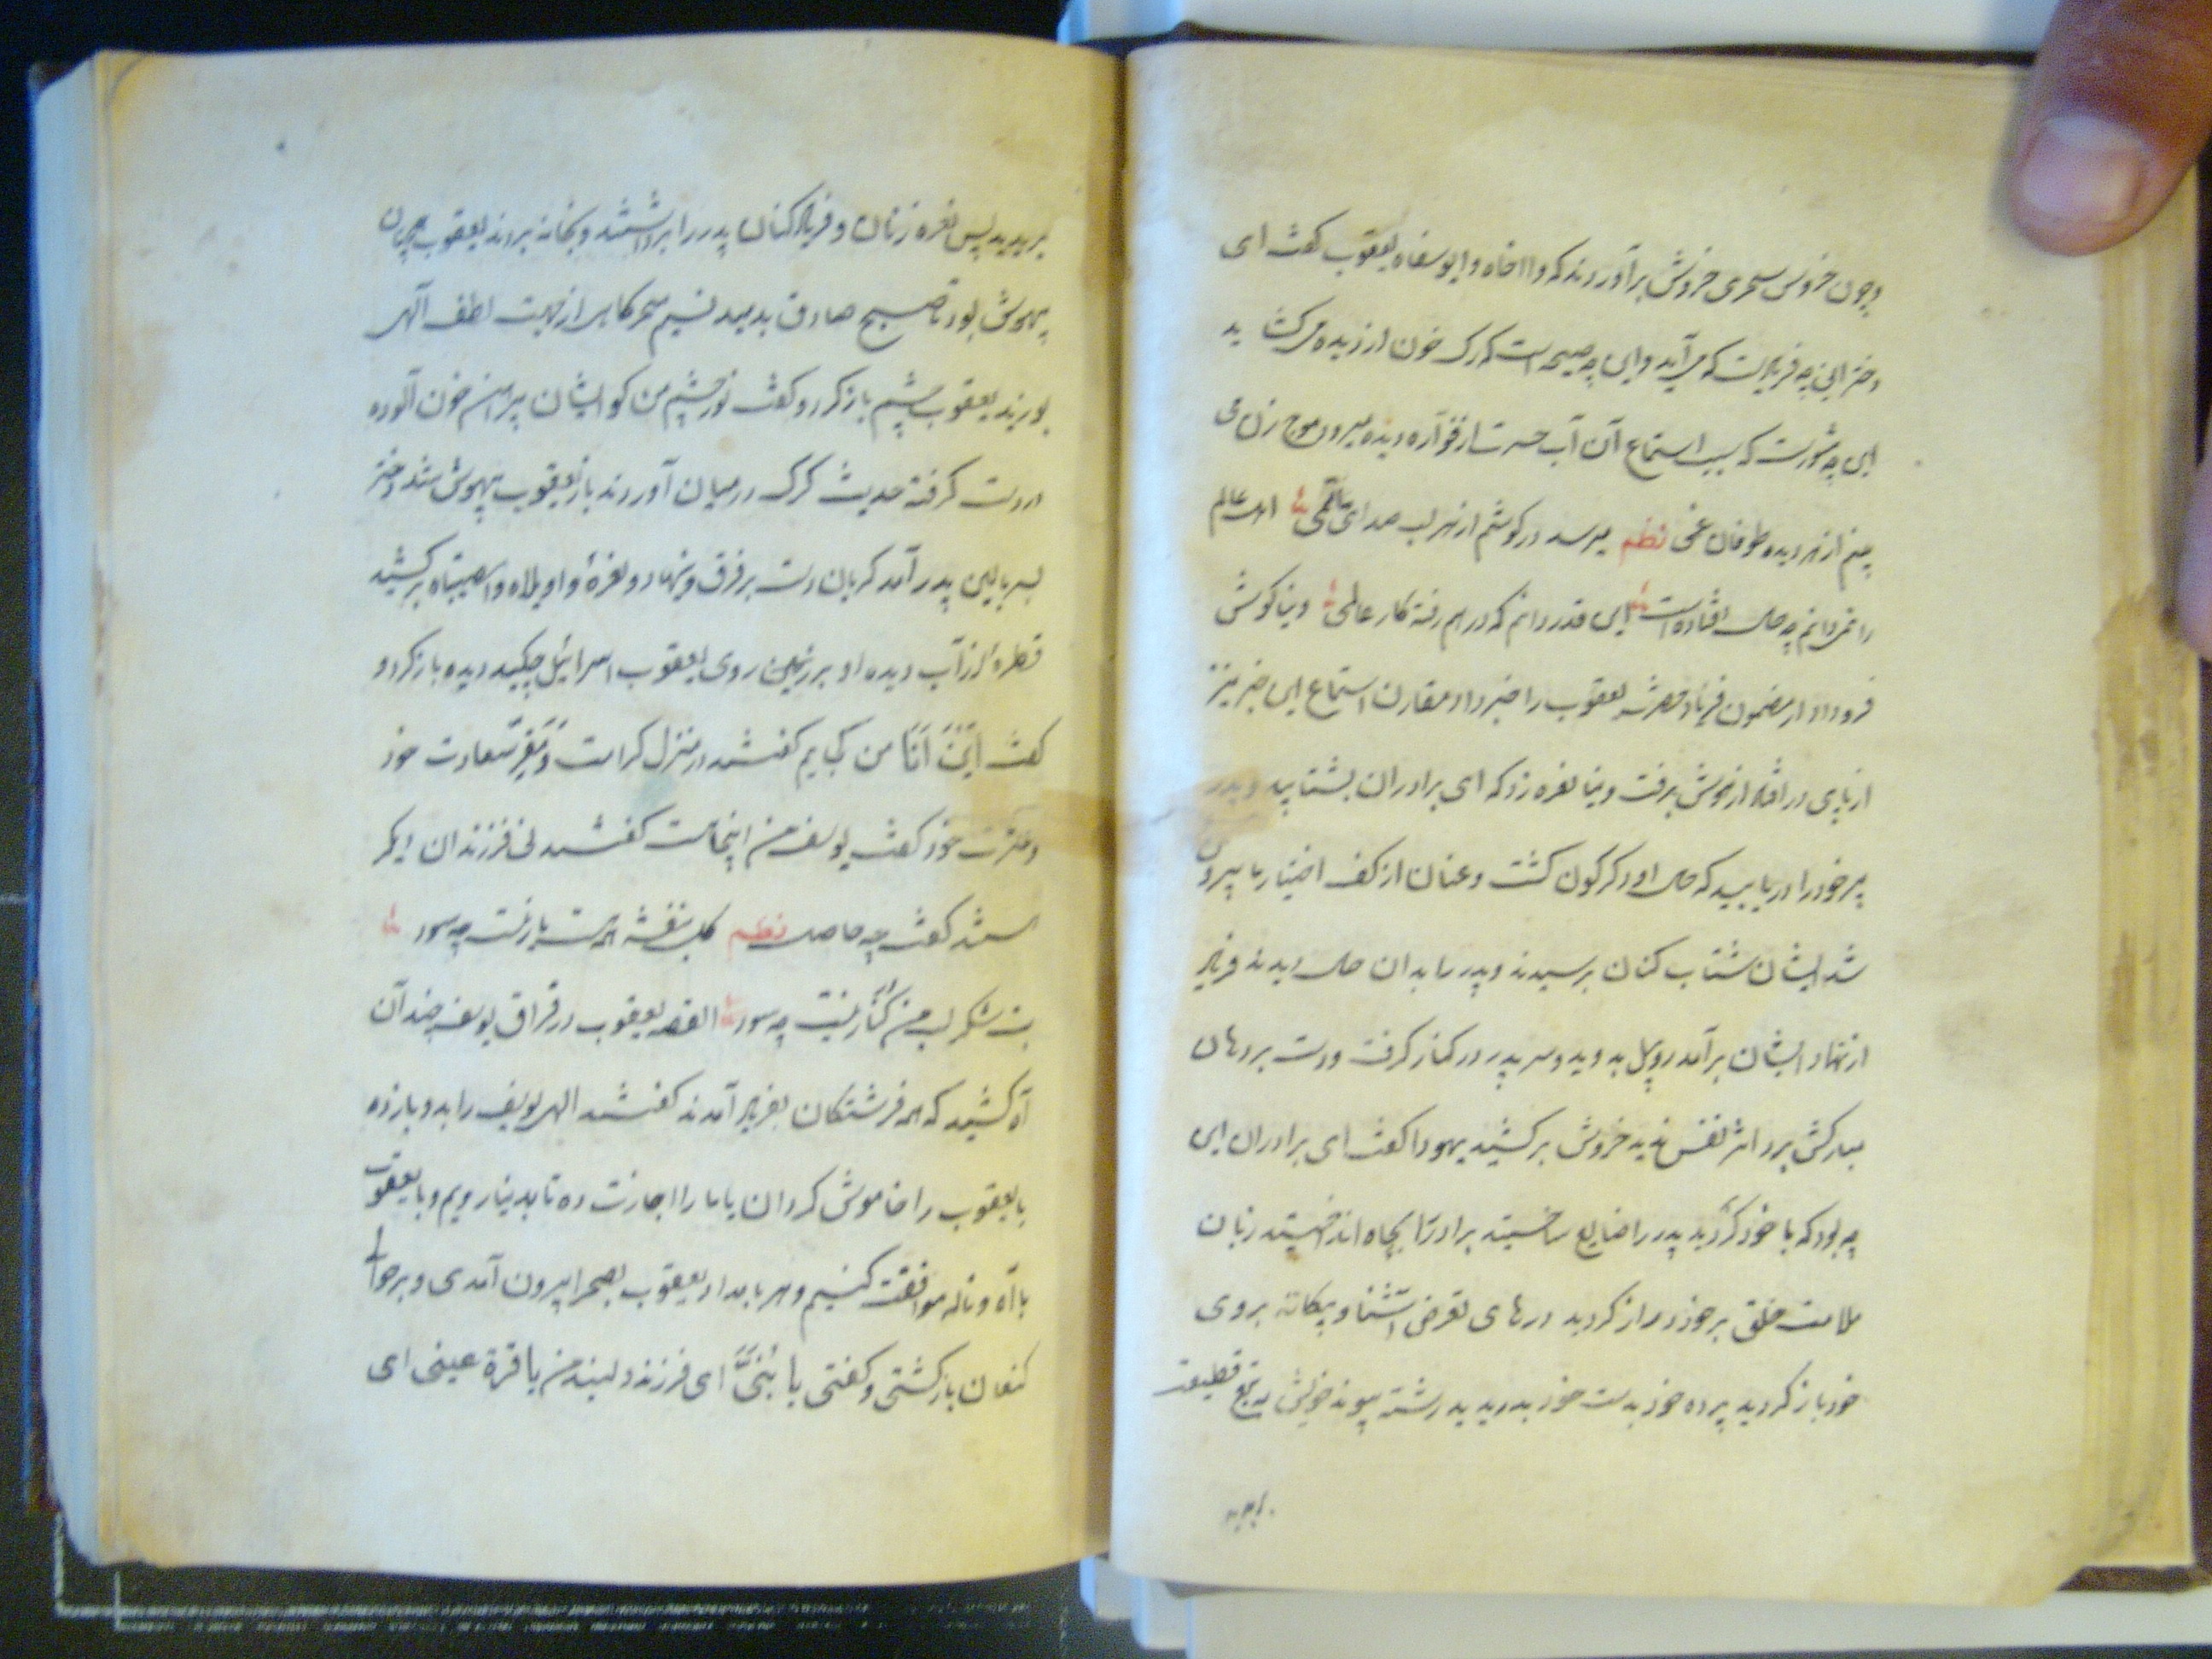 و چون خروس سحری خروش برآوردند که وا اخاه وا یوسفاه یعقوب گفت ای
دختر این چه فریادست که می‌آید و این چه صیحه است که رگ خون از دیده می‌کشاید
این چه شورست که بسبب استماع آن آب حسرت از فواره دیده میرود موج زن
بینم از هر دیده طوفان غمی نظم میرسد در گوشم از هر لب صدای ماتمی اهل عالم
را نمی‌دانم چه حال افتاده است این قدر دانم که درهم رفته کار عالمی دینا گوش
فرو داد از مضمون فریاد حضرت یعقوب را خبر داد مقارن استماع این خبر نیز
از پای درافتاد از هوش برفت و دینا نعره زد که ای برادران بشتابید و پدر
پیر خود را دریابید که حال او دگرگون گشت و عنان از کف اختیار ما بیرون
شد ایشان شتاب کنان برسیدند و پدر را بدان حال دیدند فریاد
از نهاد ایشان برآمد روبیل بدوید و سر پدر در کنار گرفت و دست بر دهان
مبارکش برد اثر نفس ندید خروش برکشید یهودا گفت ای برادران این
چه بود که با خود کردید پدر را ضایع ساختید برادر را بچاه انداختید زبان
ملامت خلق بر خود دراز کردید درهای تعرض آشنا و بیگانه بروی
خود باز کردید پرده خود بدست خود بدریدید رشته پیوند خویش به تیغ قطیعت
ببریدید
ببریدید پس نعره زنان و فریاد کنان پدر را برداشتند و بخانه بردند یعقوب همچنان
بیهوش بود تا صبح صادق بدمید نسیم سحرگاهی از مهب لطف الهی
بوزید یعقوب چشم باز کرد و گفت نور چشم من کو ایشان پیراهن خون آلوده
در دست گرفته حدیث گرگ در میان آوردند باز یعقوب بیهوش شد دختر
بسر بالین پدر آمد گریان دست بر فرق نهاد و نعرهٔ وا ویلاه وا مصیبتاه برکشید
قطرهٔ از آب دیده او بر زمین روی یعقوب اسرائیل چکید دیده باز کرد و
گفت این انا من کجایم گفتند در منزل کرامت و مقر سعادت خود
و عترت خود گفت یوسف من اینجاست گفتند نی فرزندان دیگر
هستند گفت چه حاصل نظم گل بنفشه همه هست یار نیست چه سود
بت شکر لب من در کنار نیست چه سود القصه یعقوب در فراق یوسف چندان
آه کشید که همه فرشتگان بفریاد آمدند گفتند الهی یوسف را بدو باز ده
یا یعقوب را خاموش گردان یا ما را اجازت ده تا بدنیا رویم و با یعقوب
با آه و ناله موافقت کنیم و هر بامداد یعقوب بصحرا بیرون آمدی و بر حوالی
کنعان بازگشتی و گفتی یا بنی ای فرزند دلبند من یا قرة عینی ای